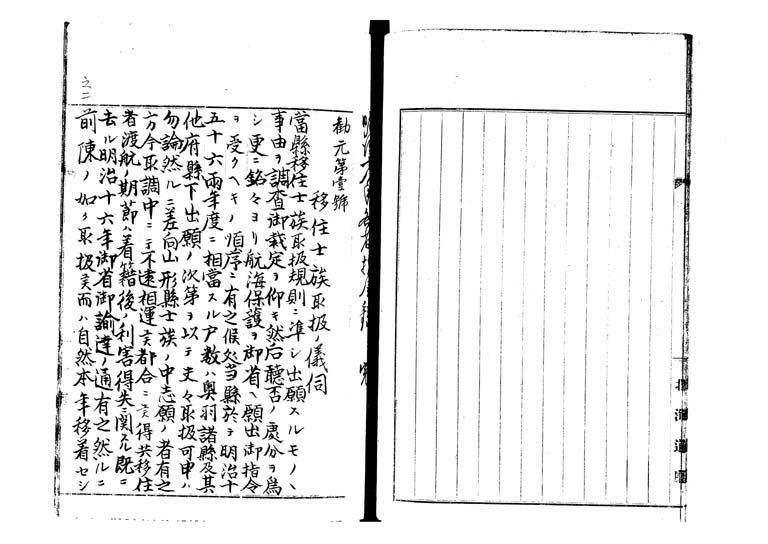 勧元第壹號
移住士族取扱ノ儀伺
當縣移住士族取扱規則ニ準シ出願スルモノハ
事由ヲ調査御裁定ヲ仰キ然后聽否ノ處分ヲ為
シ更ニ銘々ヨリ航海保護ヲ御省ヘ願出御指令
ヲ受クヘキノ順序ニ有之候処当縣於テ明治十
五十六兩年度ニ相當スル戸数ハ奥羽諸縣及其
他府縣下出願ノ次第ヲ以テ夫々取扱可申ハ
勿論然ルニ差向山形縣士族ノ中志願ノ者有之
方今取調中ニテ不遠相運候都合ニ候得共移住
者渡航ノ期節ハ着籍後ノ利害得失ニ関スル既ニ
去ル明治十六年御省御諭達ノ通有之然ルニ
前陳ノ如ク取扱候而ハ自然本年移着セシ
之二
北海道廳